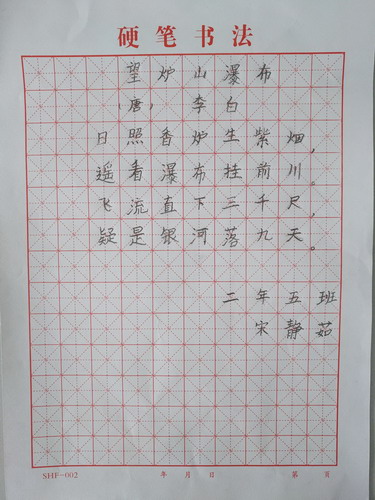 硬笔书法
望炉山瀑布
（唐） 李白
日照香炉生紫烟，
遥看瀑布挂前川。
飞流直下三千尺，
疑是银河落九天。
二年五班
宋静茹
SHF-002 年 月 日 第 页